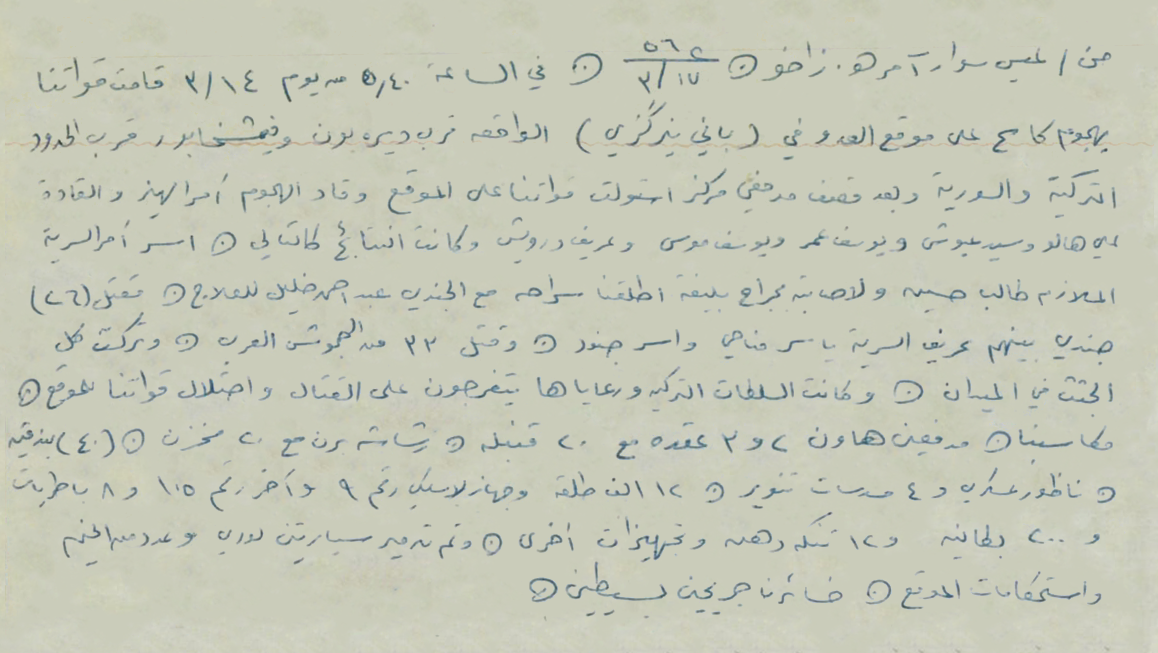 من / عيسى سوار آمر هـ. زاخو ⊙ ٥٦٢ / ٣/١٧ ⊙ في الساعة ٥,٤٠ من يوم ٣/١٤ قامت قواتنا
بهجوم كاسح على موقع العدو في (باني نيرگزي) الواقعه قرب ديره بون وفيشخابور قرب الحدود
التركية والسورية وبعد قصف مدفعي مركز استولت قواتنا على الموقع وقاد الهجوم أمرا الهيز والقادة
علي هالو وسيد عيوش ويوسف عمر ويوسف موسى وعريف درويش وكانت النتائج كالتالي ⊙ اسر أمر السرية
الملازم طالب حسين ولاصابته بجراح بليغة اطلقنا سراحه مع الجندي عبد احمد خليل للعلاج ⊙ مقتل (٢٦)
جندي بينهم عريف السرية ياسر مناحي واسر جنود ⊙ وقتل ٣٣ من الجحوش العرب ⊙ وتركت كل
الجثث في الميدان ⊙ وكانت السلطات التركيه ورعاياها يتفرجون على القتال واحتلال قواتنا للموقع ⊙
مكاسبنا ⊙ مدفعين هاون ٢ و ٣ عقده مع ٢٠ قنبله ⊙ رشاشه برن مع ٢٠ مخزن ⊙ (٤٠) بندقيه
⊙ ناظور عسكري و ٤ مسدسات تنوير ⊙ ١٢ الف طلقه وجهاز لاسلكي رقم ٩ وآخر رقم ١٠٥ و ٨ باطريات
و ٢٠٠ بطانيه و ١٢ تنكه دهن وتجهيزات أخرى ⊙ وتم تدمير سيارتين لوري وعدد من الخيم
واستحكامات الموقع ⊙ خسائرنا جريحين بسيطين ⊙